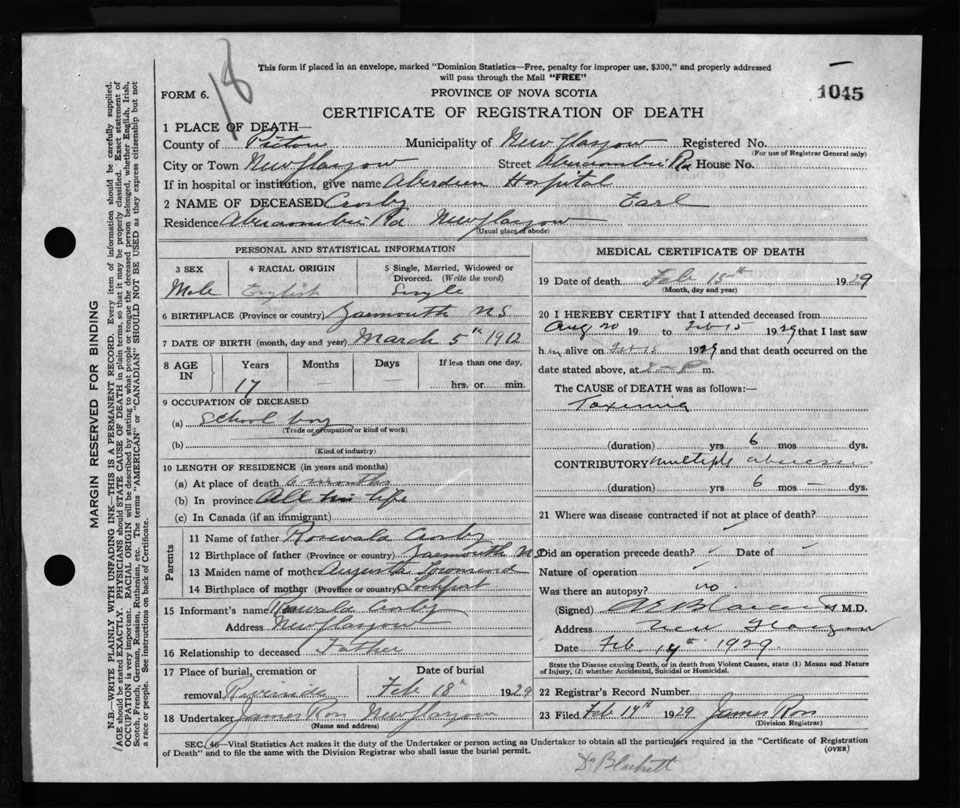 18
This form if placed in an envelope, marked "Dominion Statistics—Free, penalty for improper use, $300," and properly addressed
will pass through the Mail "FREE"
1045
FORM 6.
PROVINCE OF NOVA SCOTIA
CERTIFICATE OF REGISTRATION OF DEATH
1 PLACE OF DEATH—
County of Pictou Municipality of New Glasgow Registered No.
(For use of Registrar General only)
City or Town New Glasgow Street Abercrombie Rd House No.
If in hospital or institution, give name Aberdeen Hospital
2 NAME OF DECEASED Crosby Earl
Residence Abercrombie Rd New Glasgow
(Usual place of abode)
PERSONAL AND STATISTICAL INFORMATION
3 SEX 4 RACIAL ORIGIN 5 Single, Married, Widowed or Divorced. (Write the word)
Male English Single
6 BIRTHPLACE (Province or country) Yarmouth N S
7 DATE OF BIRTH (month, day and year) March 5th 1912
8 AGE IN Years Months Days If less than one day,
17 – hrs. or min.
9 OCCUPATION OF DECEASED
(a) School boy
(Trade or occupation or kind of work)
(b)
(Kind of industry)
10 LENGTH OF RESIDENCE (in years and months)
(a) At place of death 6 months
(b) In province All his life
(c) In Canada (if an immigrant)
Parents
11 Name of father Crosby
12 Birthplace of father (Province or country) Yarmouth N S
13 Maiden name of mother Augusta Townsend
14 Birthplace of mother (Province or country) Lockport
15 Informant's name Crosby
Address New Glasgow
16 Relationship to deceased Father
17 Place of burial, cremation or removal Riverside Date of burial Feb 18th 1929
18 Undertaker James Ross New Glasgow
(Name and address)
MEDICAL CERTIFICATE OF DEATH
19 Date of death Feb 15th 1929
(Month, day and year)
20 I HEREBY CERTIFY that I attended deceased from
Aug 20 19 to Feb 15 1929 that I last saw
him alive on Feb 15 1929 and that death occurred on the
date stated above, at P m.
The CAUSE OF DEATH was as follows:—
Toxemia
(duration) yrs 6 mos dys.
CONTRIBUTORY multiple abscess
(duration) yrs 6 mos — dys.
21 Where was disease contracted if not at place of death?
Did an operation precede death? Date of
Nature of operation
Was there an autopsy? no
(Signed) M.D.
Address New Glasgow
Date Feb 1929
State the Disease causing Death, or in death from Violent Causes, state (1) Means and Nature
of Injury, (2) whether Accidental, Suicidal or Homicidal.
22 Registrar's Record Number
23 Filed Feb 19th 1929 James Ross
(Division Registrar)
SEC. 46—Vital Statistics Act makes it the duty of the Undertaker or person acting as Undertaker to obtain all the particulars required in the "Certificate of Registration
of Death" and to file the same with the Division Registrar who shall issue the burial permit.
(OVER)
Dr
MARGIN RESERVED FOR BINDING
N.B.—WRITE PLAINLY WITH UNFADING INK—THIS IS A PERMANENT RECORD. Every item of information should be carefully supplied.
AGE should be stated EXACTLY. PHYSICIANS should STATE CAUSE OF DEATH in plain terms, so that it may be properly classified. Exact statement of
OCCUPATION is very important. RACIAL ORIGIN will be described by stating to what people or tongue the deceased person belonged, whether English, Irish,
Scotch, French, German, Russian, Ruthenian, etc. The terms "AMERICAN" or "CANADIAN" SHOULD NOT BE USED as they express citizenship but not
a race or people. See instructions on back of Certificate.